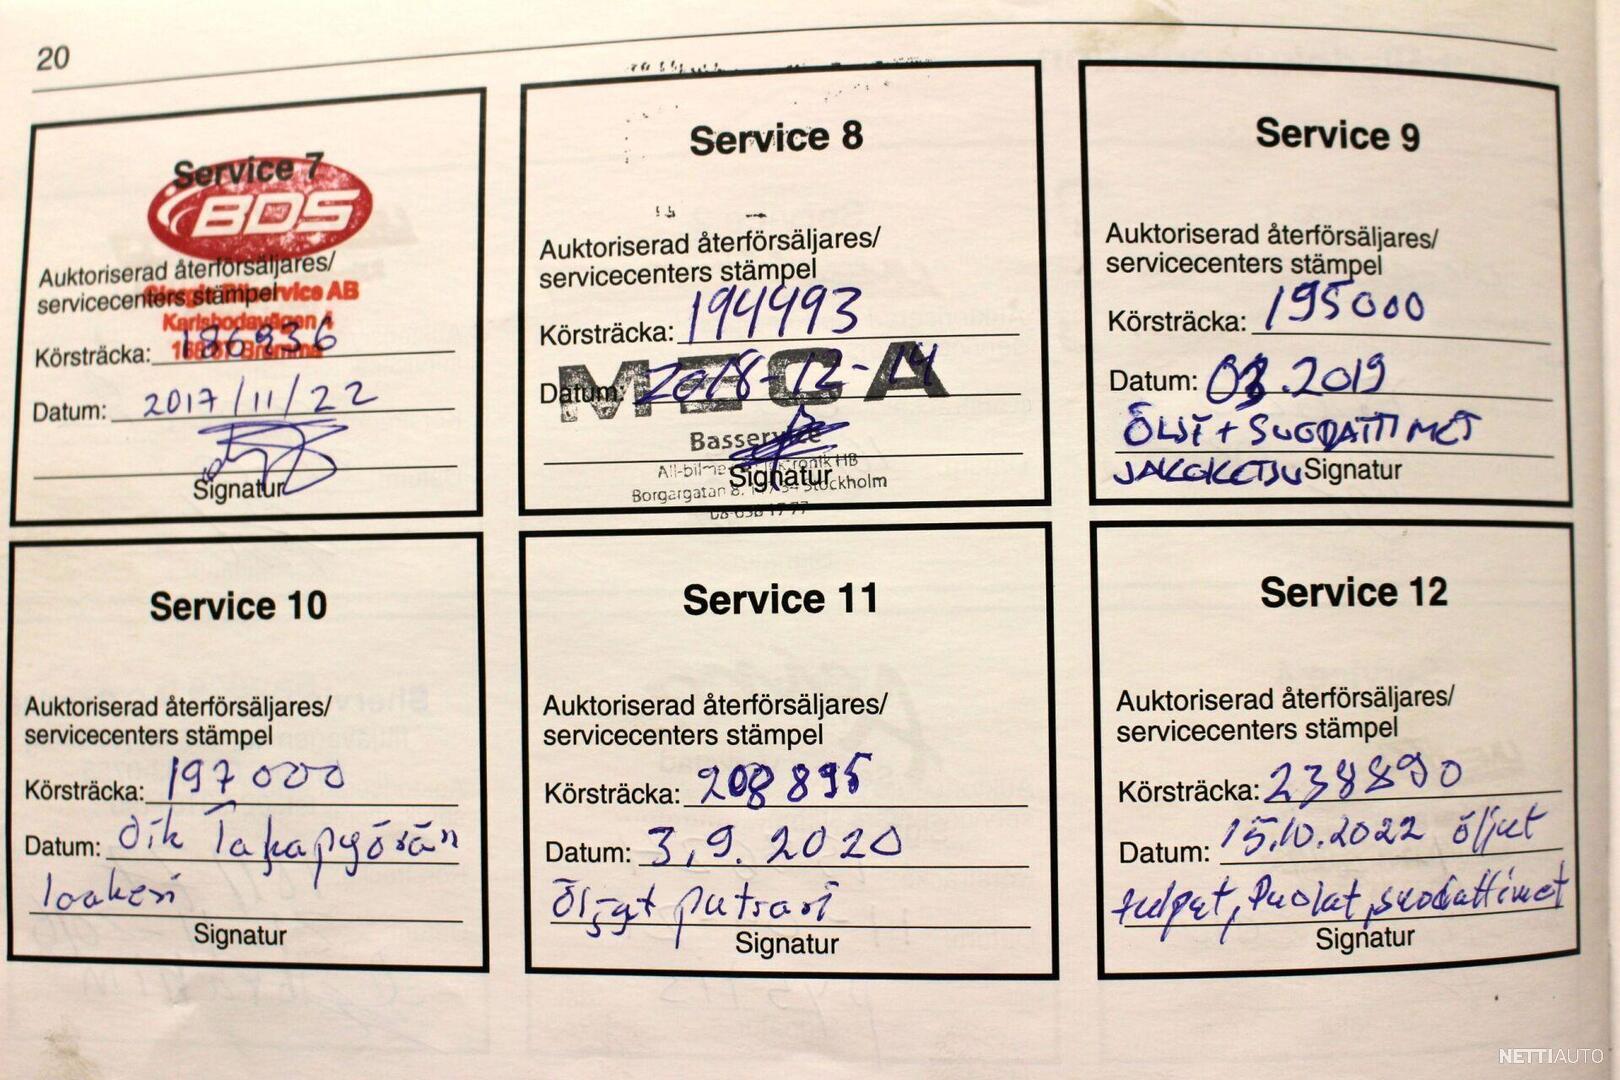 20
Service 7
BDS
Auktoriserad återförsäljares/
servicecenters stämpel
Karlsbodavägen 4
Körsträcka: 186936
Datum: 2017/11/22
Signatur
Service 8
Auktoriserad återförsäljares/
servicecenters stämpel
Körsträcka: 194493
MECA
Datum: 2018-12-14
Signatur
Borgargatan 8, Stockholm
Service 9
Auktoriserad återförsäljares/
servicecenters stämpel
Körsträcka: 195000
Datum: 03.2019
ÖLJT + SUODATTIMET
JAKOKETJU Signatur
Service 10
Auktoriserad återförsäljares/
servicecenters stämpel
Körsträcka: 197000
Datum: Oik Takapyörän
laakeri
Signatur
Service 11
Auktoriserad återförsäljares/
servicecenters stämpel
Körsträcka: 208895
Datum: 3,9.2020
Öljyt
Signatur
Service 12
Auktoriserad återförsäljares/
servicecenters stämpel
Körsträcka: 238890
Datum: 15.10.2022 öljyt
tulpat, Puolat, suodattimet
Signatur
NETTIAUTO